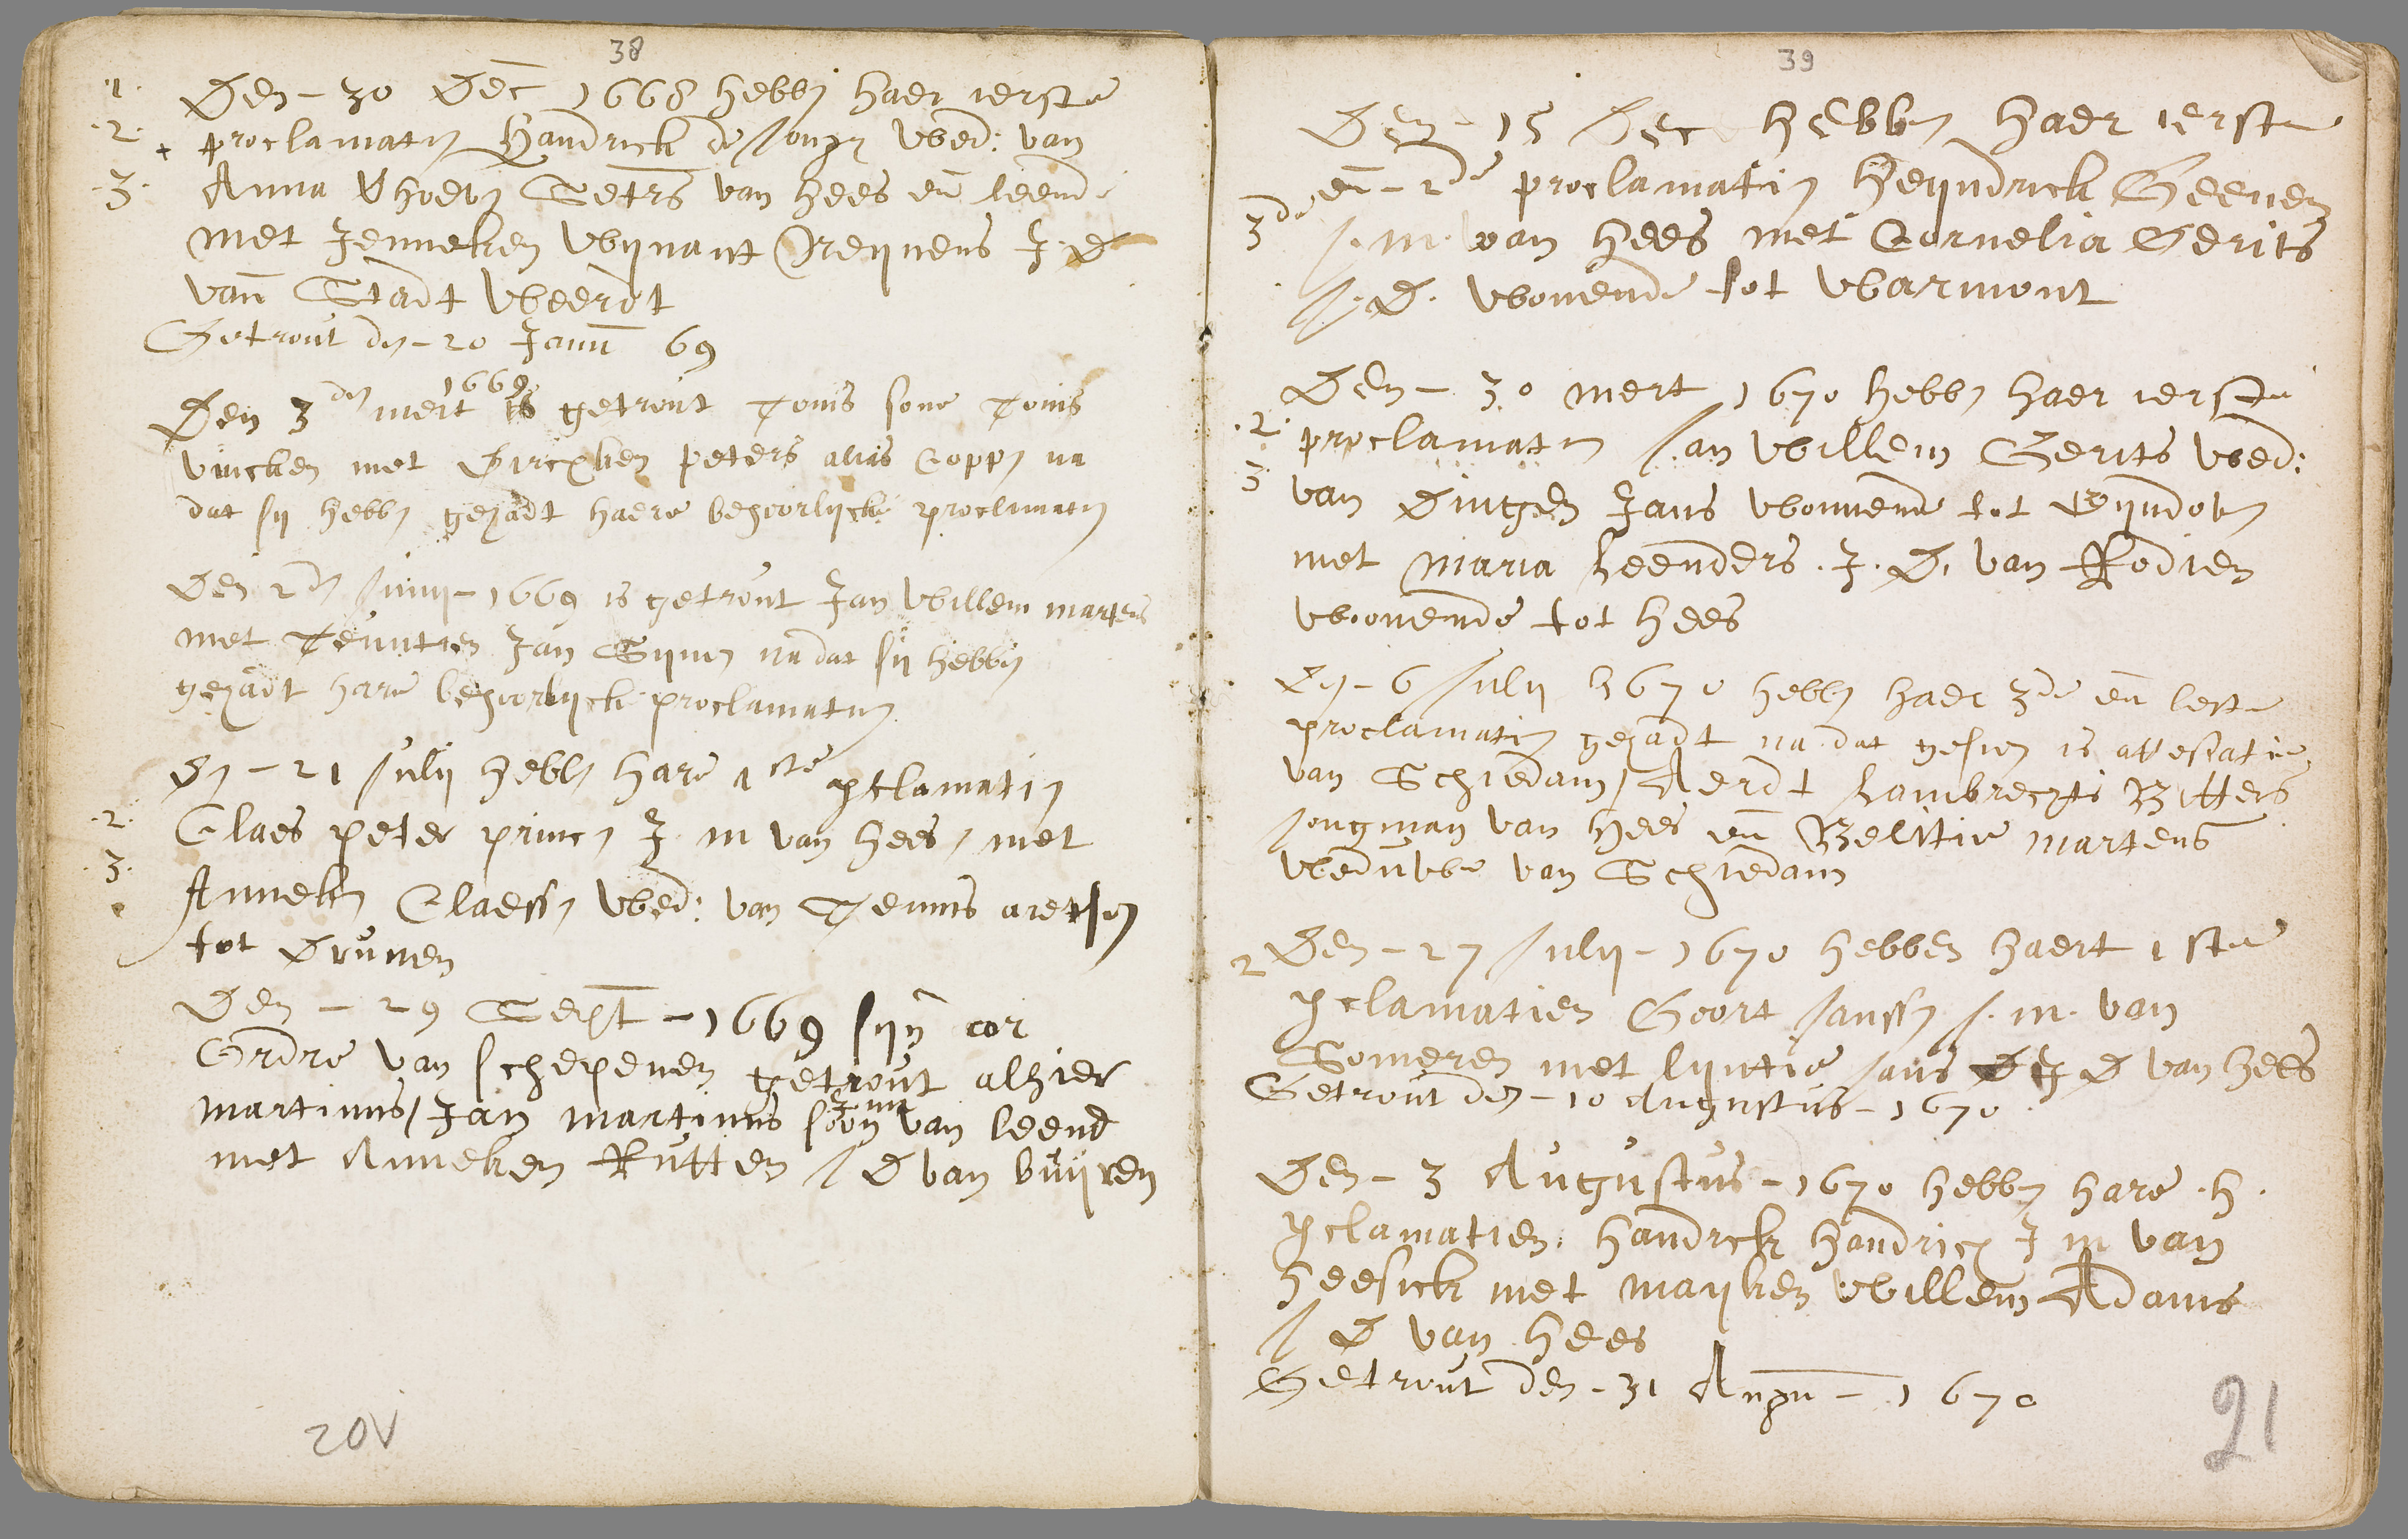 38
1. Den - 30 Dec 1668 hebbn haer ierste
2. + proclamatn Handrick de Jongr Wed: van
3. Anna Vhoevn Getrs van Hees en leend
met Jenneken Wijnant Reijnens J. D
van Stadt Weerdt
Getrout dn - 20 Janu 69
1669
Den 3 dn mert is getrout Tonis sone Tonis
Vincken met Dircxken peters alias Coppn na
dat sij hebbn gehadt haere behoorlycke proclamatn
Den 2 dn Junij - 1669 is getrout Jan Willem martens
met Teuntien Jan Gijnen na dat sij hebbn
gehadt hare behoorlyck proclamatin
Dn - 21 Julij hebbn hare 1ste pclamatin
2. Claes peter princn J. m van hees, met
3. Annekn Claessn Wed: van Teunis aretsen
tot Drunen
Den - 29 Sept - 1669 sijn cor
Ordre van schepenen getrout alhier
Jun
martinus, Jan martinus soon van leend
met Anneken Rutten J D van buijren
20V
39
Den - 15 Dec hebbn haer ierste
en - 2de proclamatin Heijndrick Geenen
3de J. m. van Hees met Cornelia Gerits
J. D. Wonende tot Warmont
Den - 30 mert 1670 hebbn haer ierste
.2. proclamatn Jan Willem Gerits Wed:
3 van Dingen Jans Wonnende tot Eijndovn
met Maria Leenders. J. D. van Rodien
Woonende tot Hees
Dn - 6 Julij 1670 hebbn haer 3de en leste
proclamatin gehadt na dat gesien is attestatie
van Schiedam, Aerdt Lambrechts Bitters
Jongman van Hees en Belitie martens
Weduwe van Schiedam
2 Den - 27 Julij - 1670 hebben haert 1ste
pclamatien Goort Janssn J. m. van
Someren met lijntie Jans J D van Hees
Getrout den - 10 Augustus - 1670
Den - 3 Augustus - 1670 hebbn hare .h.
pclamatien. Handrck Handricx J m van
Heesick met mayken Willem Adams
J D van Hees
Getrout den - 31 Augu - 1670
21